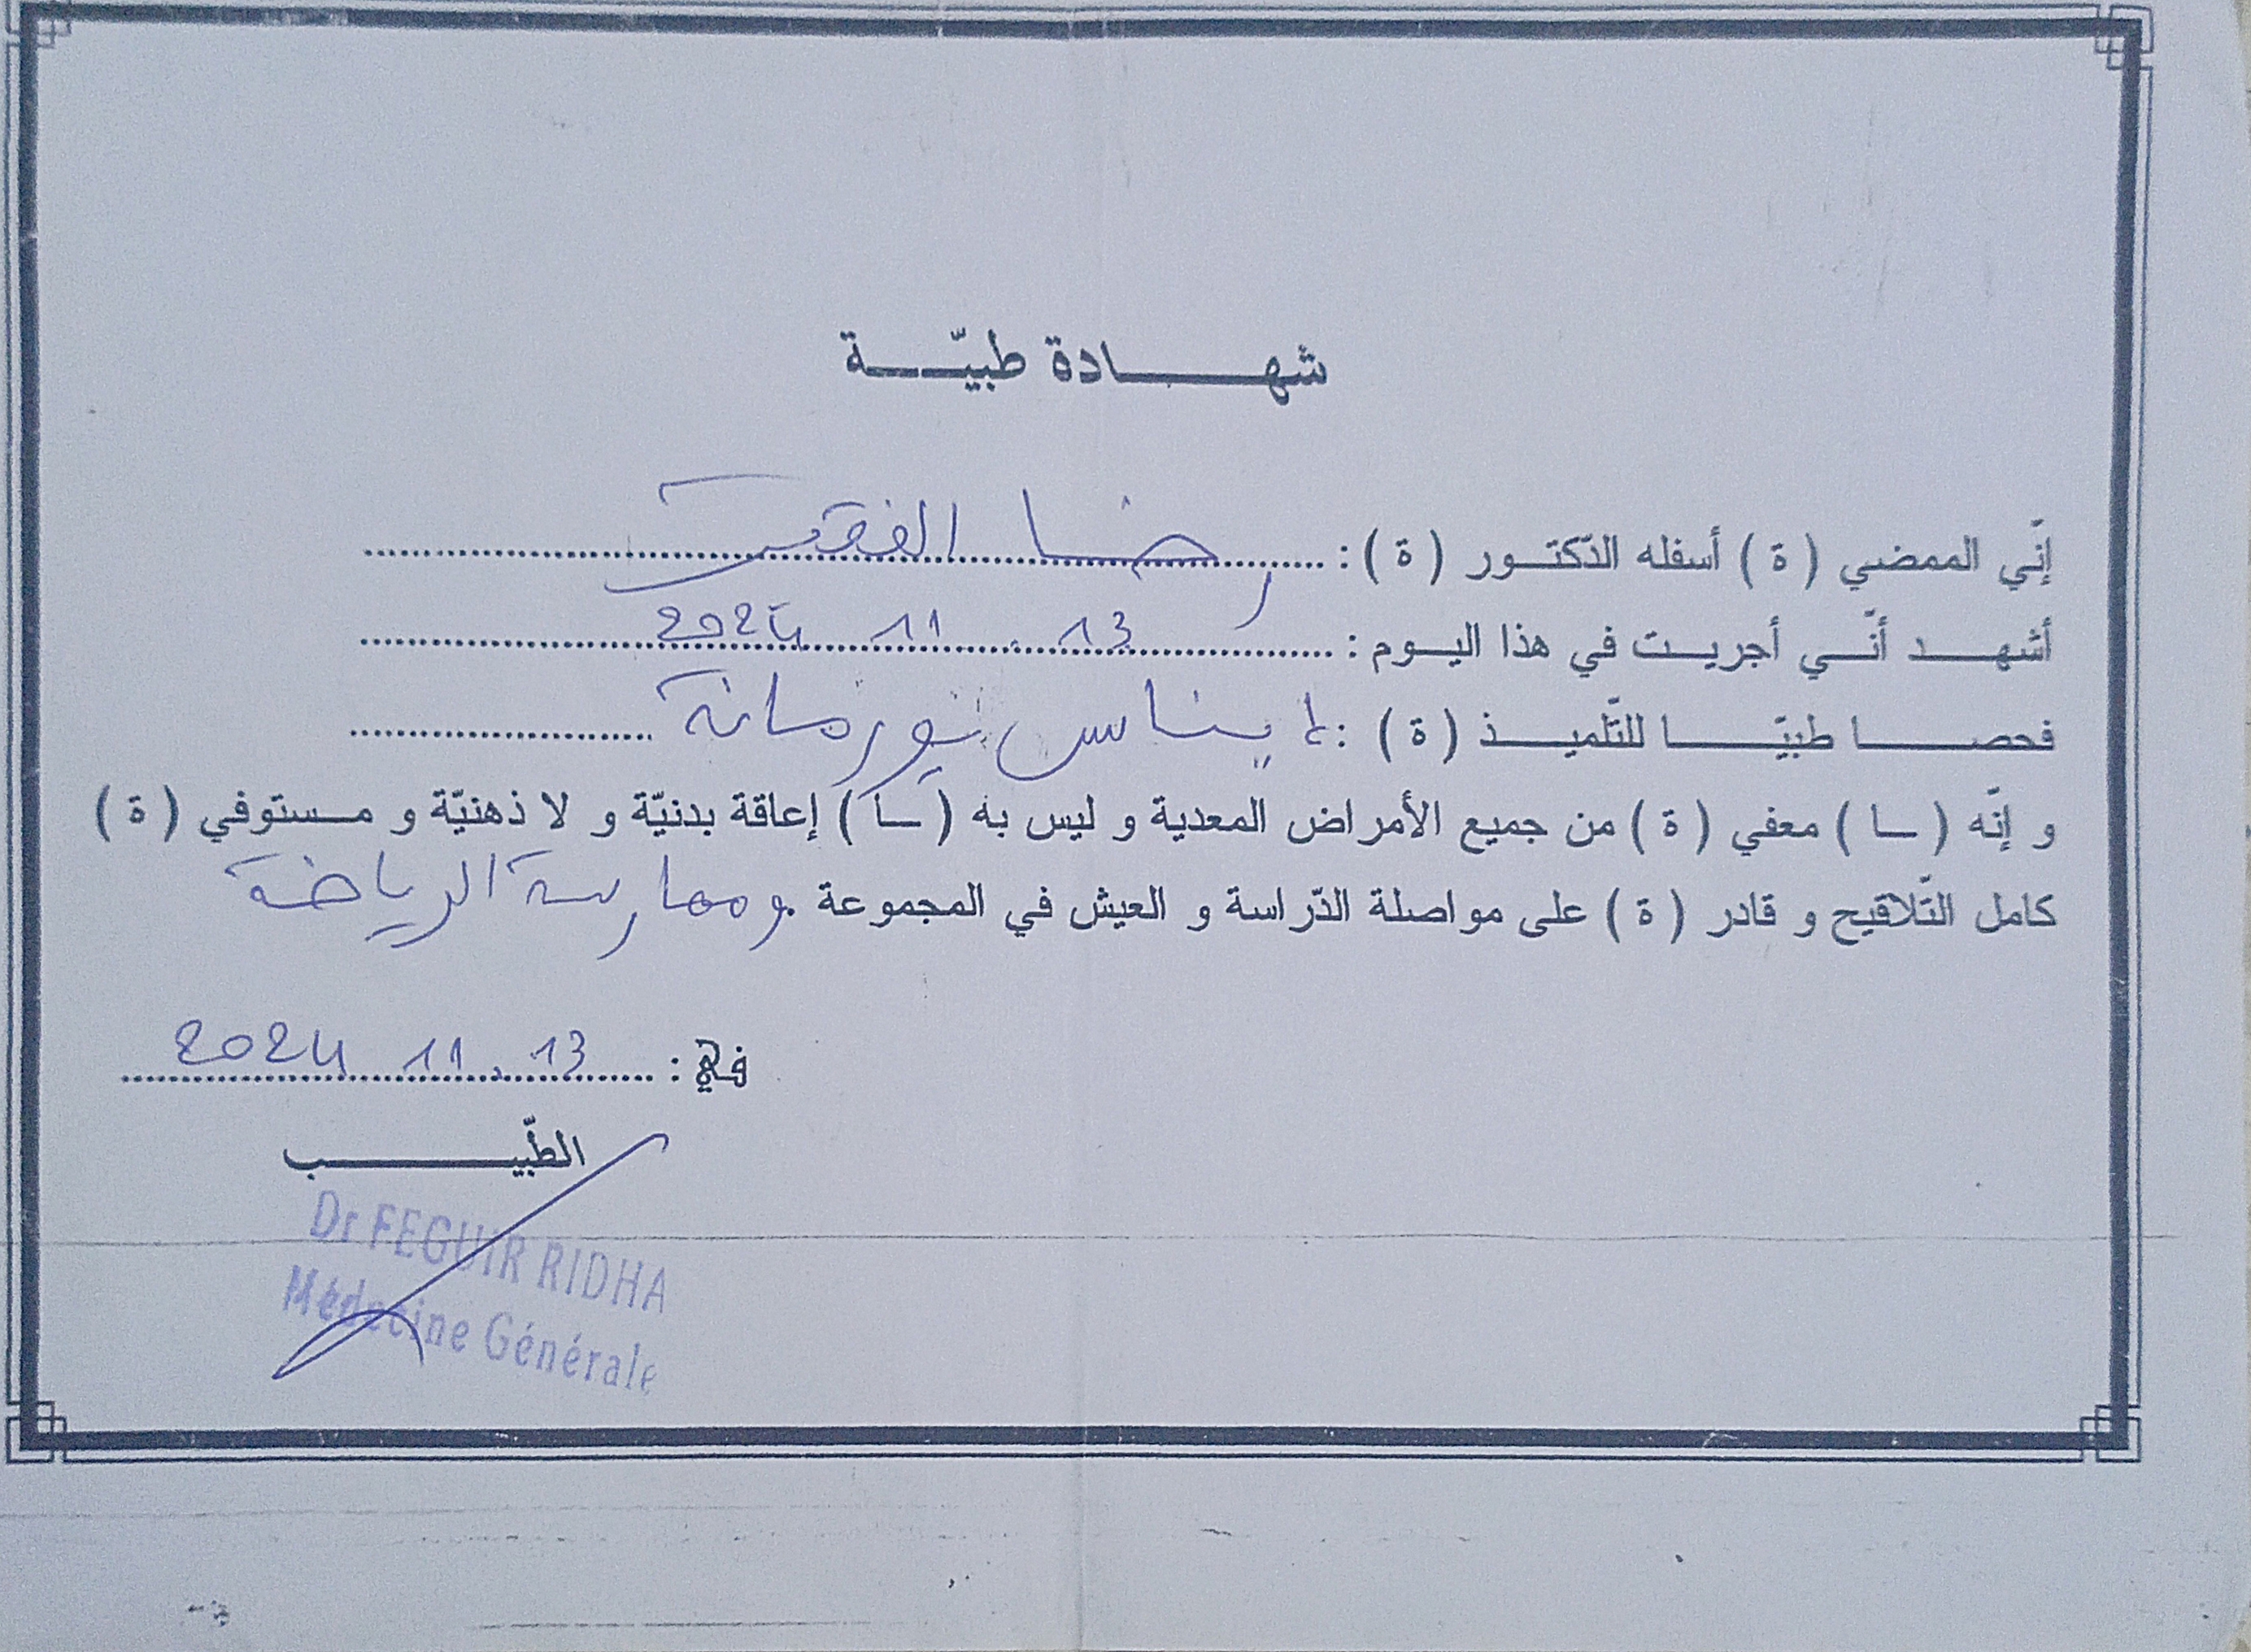 شهادة طبيّة
إنّي الممضي ( ة ) أسفله الدّكتور ( ة ) : رضا الفقير
أشهد أنّي أجريت في هذا اليوم : 13 . 11 2024
فحصا طبيّا للتّلميذ ( ة ) : إيناس بورمانة
و إنّه ( ـا ) معفي ( ة ) من جميع الأمراض المعدية و ليس به ( ـا ) إعاقة بدنيّة و لا ذهنيّة و مستوفي ( ة )
كامل التّلاقيح و قادر ( ة ) على مواصلة الدّراسة و العيش في المجموعة . وممارسة الرياضة
في : 13 . 11 2024
الطّبيب
Dr FEGUIR RIDHA
Médecine Générale